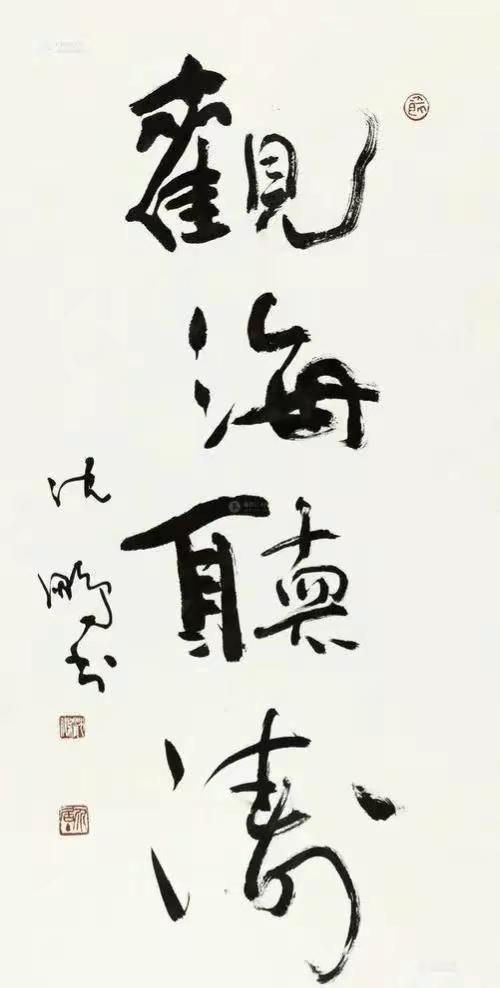 觀海聽濤
沈鵬书